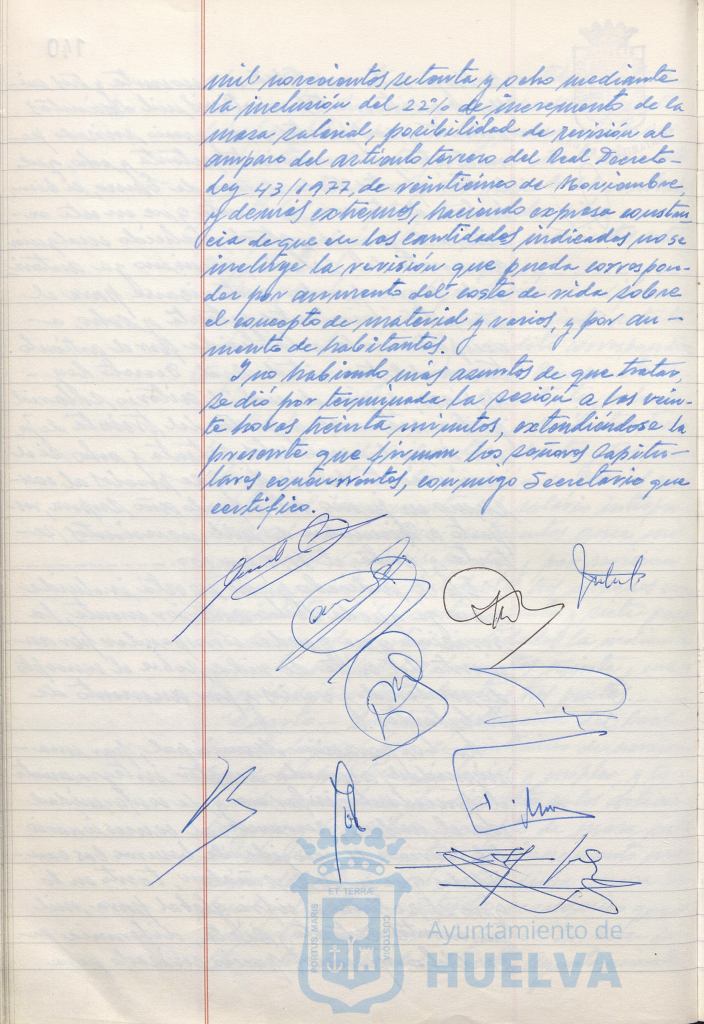 mil novecientos setenta y ocho mediante
la inclusión del 22% de incremento de la
masa salarial, posibilidad de revisión al
amparo del artículo tercero del Real Decreto-
Ley 43/1977, de veinticinco de Noviembre,
y demás extremos, haciendo expresa constan-
cia de que en las cantidades indicadas no se
incluye la revisión que pueda correspon-
der por aumento del coste de vida sobre
el concepto de material y varios, y por au-
mento de habitantes.
Y no habiendo más asuntos de que tratar,
se dió por terminada la sesión a las vein-
te horas treinta minutos, extendiéndose la
presente que firman los señores Capitu-
lares concurrentes, conmigo Secretario que
certifico.
ET TERRÆ
PORTUS MARIS
CUSTODIA
Ayuntamiento de
HUELVA
140